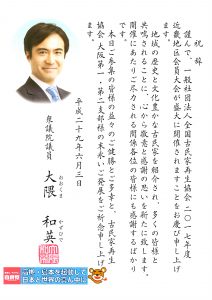 祝辞
謹んで、一般社団法人全国古民家再生協会二〇一七年度
近畿地区会員大会が盛大に開催されますことをお慶び申し上げ
ます。
地域の歴史と文化豊かな古民家を紹介され、多くの皆様と
共鳴されることに、心から敬意と感謝の思いを新たに致します。
開催にあたりご尽力される関係各位の皆様にも感謝するばかり
です。
本日ご参集の皆様の益々のご健勝とご多幸と、古民家再生
協会 大阪第一・第二支部様の末永いご発展をご祈念申し上げ
ます。
平成二十九年六月三日
衆議院議員
大隈 和英
おおくま かずひで